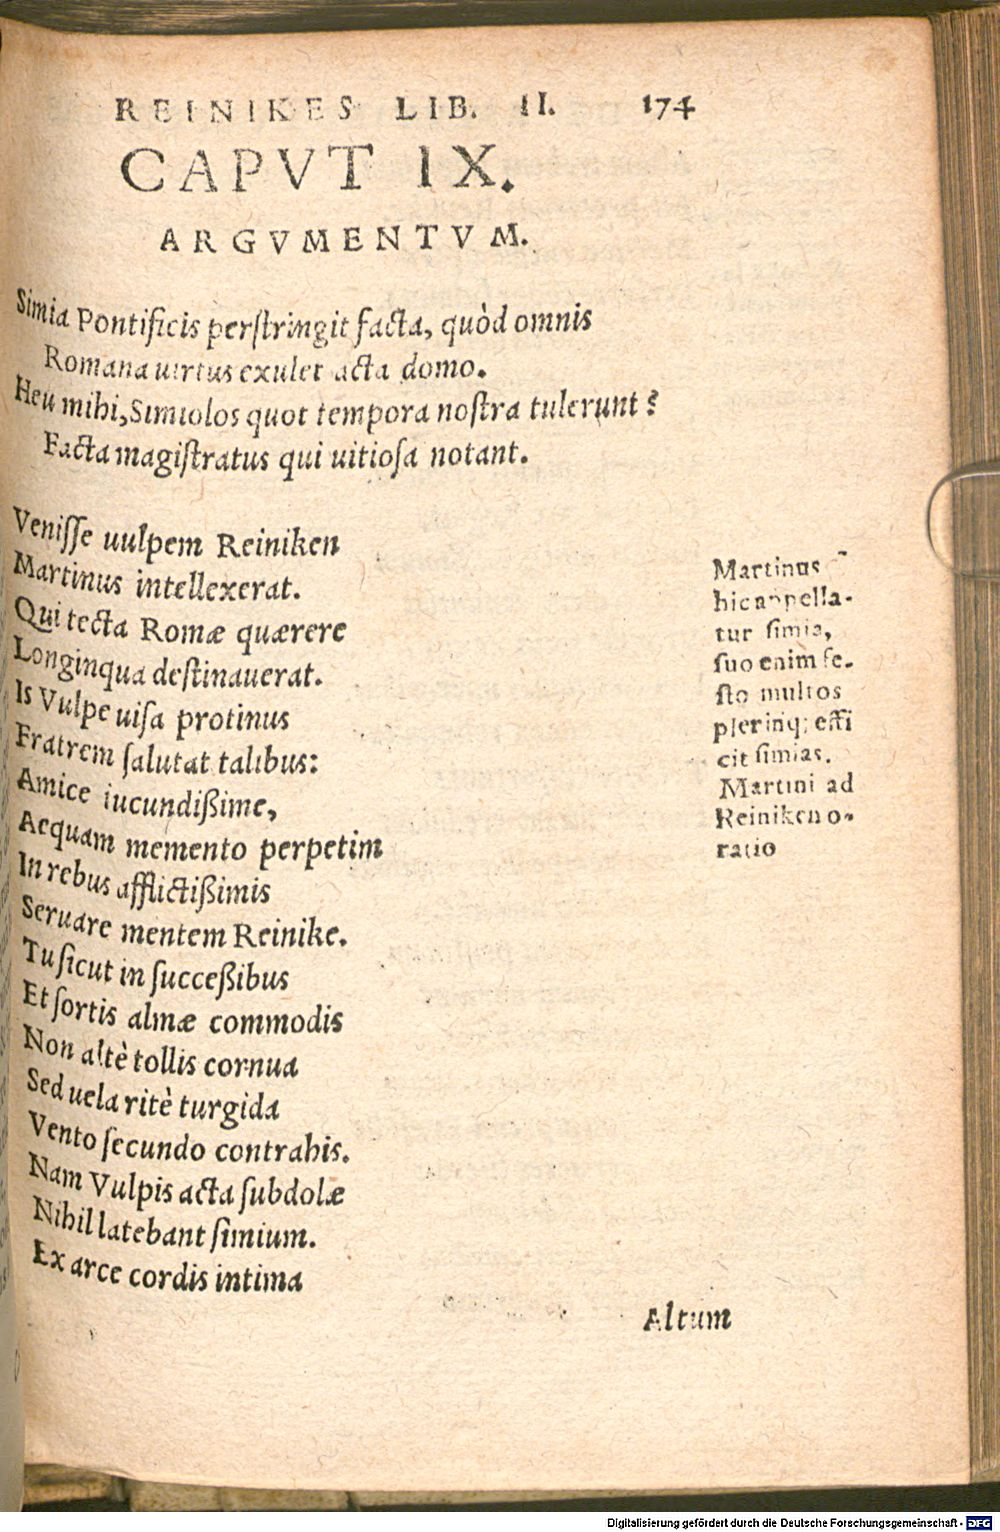 REINIKES LIB. II. 174
CAPVT IX.
ARGVMENTVM.
Simia Pontificis perſtringit facta, quòd omnis
Romana uirtus exulet acta domo.
Heu mihi, Simiolos quot tempora noſtra tulerunt?
Facta magiſtratus qui uitioſa notant.
Veniſſe uulpem Reiniken
Martinus intellexerat.
Qui tecta Romæ quærere
Longinqua deſtinauerat.
Is Vulpe uiſa protinus
Fratrem ſalutat talibus:
Amice iucundißime,
Aequam memento perpetim
In rebus afflictißimis
Seruare mentem Reinike.
Tu ſicut in succeßibus
Et ſortis almæ commodis
Non altè tollis cornua
Sed uela ritè turgida
Vento ſecundo contrahis.
Nam Vulpis acta ſubdolæ
Nihil latebant ſimium.
Ex arce cordis intima
Altum
Martinus
hic appella-
tur ſimia,
ſuo enim fe-
ſto multos
plerūq; effi
cit ſimias.
Martini ad
Reiniken o-
ratio
Digitalisierung gefördert durch die Deutsche Forschungsgemeinschaft - DFG